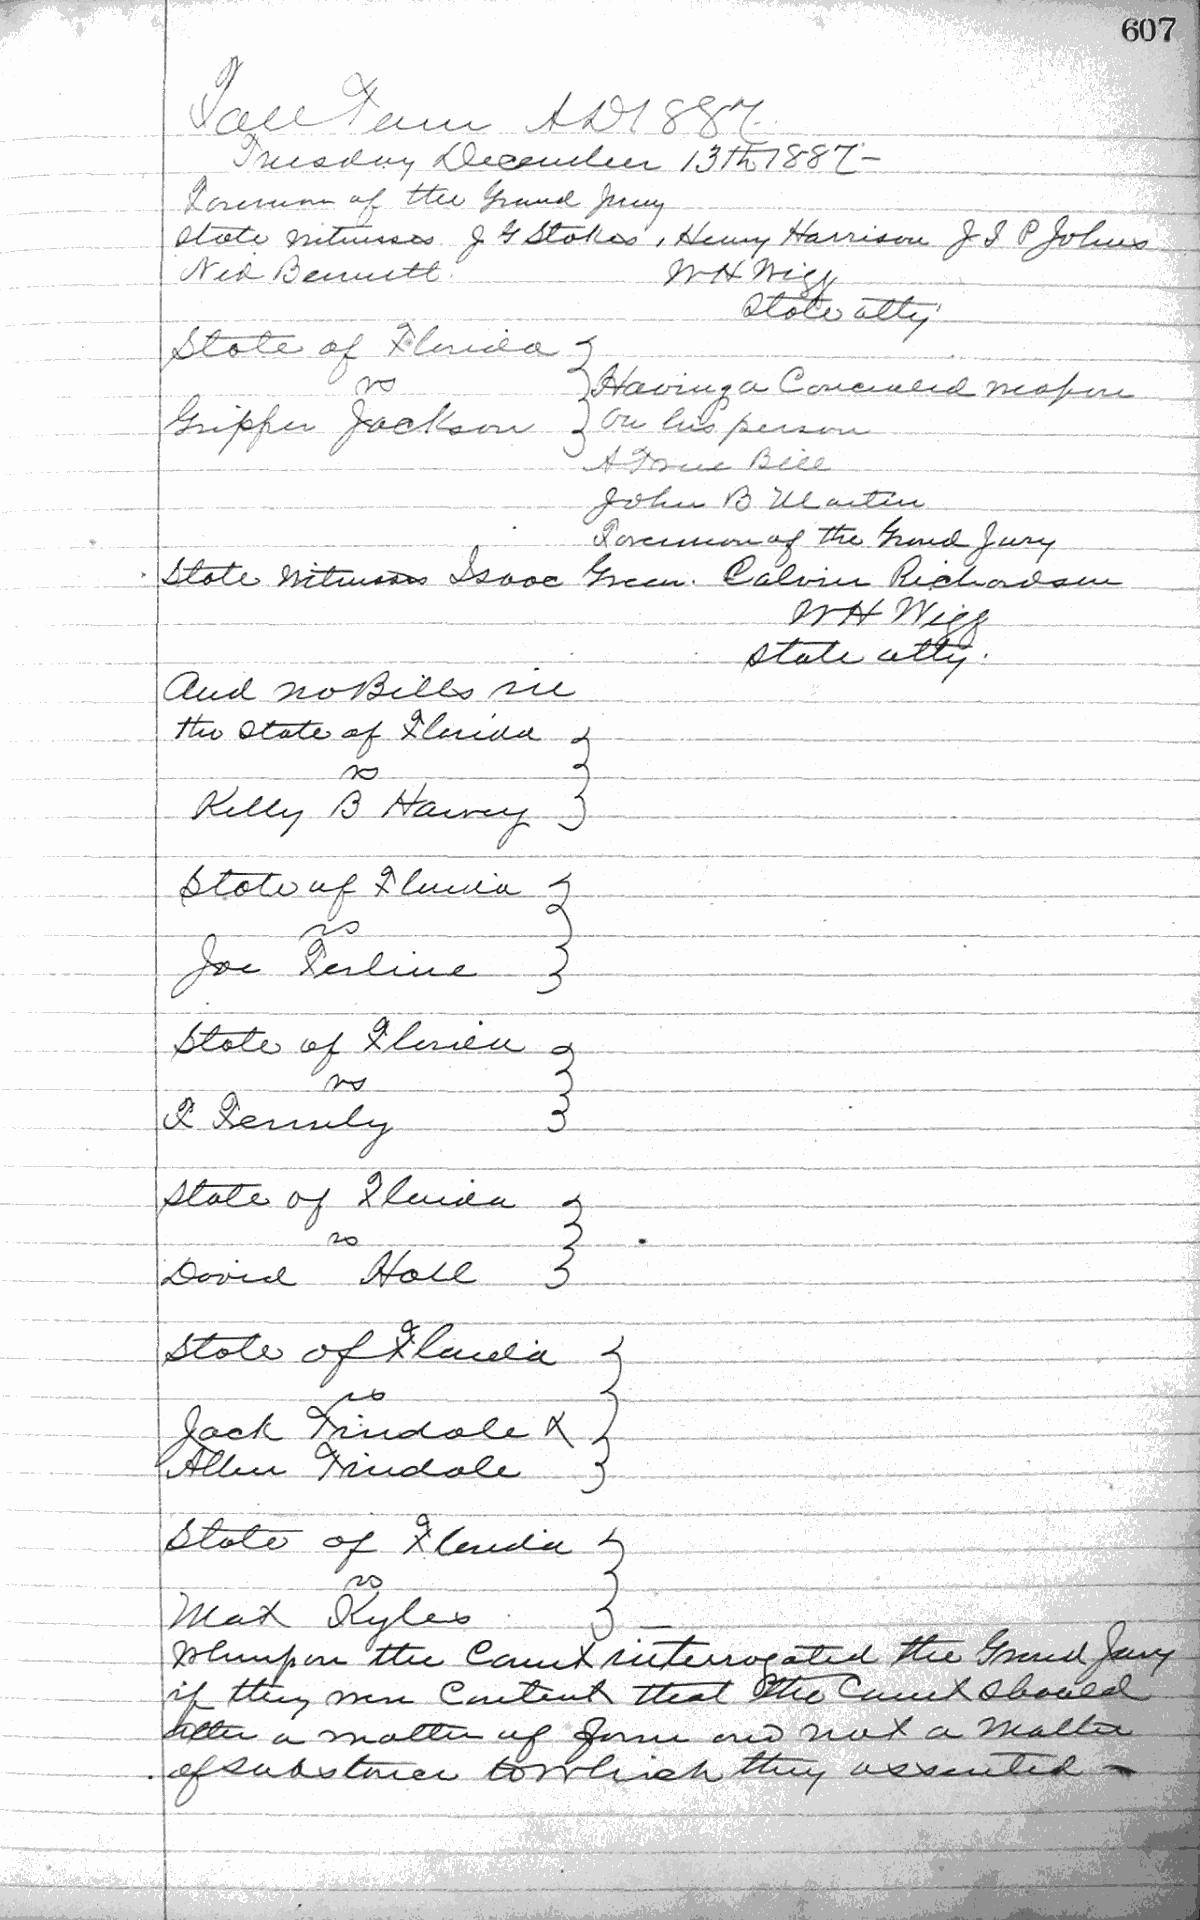 607
Fall Term AD 1887.
Tuesday December 13th 1887 -
Foreman of the Grand Jury
State Witnesses J G Stokes, Henry Harrison J I P Johns
Ned Bennett. W H Wigg
State atty
State of Florida
vs Having a Concealed weapon
Gripper Jackson on his person
A True Bill
John B Martin
Foreman of the Grand Jury
State Witnesses Isaac Green. Calvin Richardson
W H Wigg
State atty.
And no Bills in
the State of Florida
vs
Kelly B Harvey
State of Florida
vs
Joe
State of Florida
vs
F
State of Florida
vs
David Hall
State of Florida
vs
Jack Trindale &
Allen Trindale
State of Florida
vs
Max Kyles
Whereupon the Court interrogated the Grand Jury
if they were Content that the Court should
alter a matter of form and not a matter
of substance to which they assented -